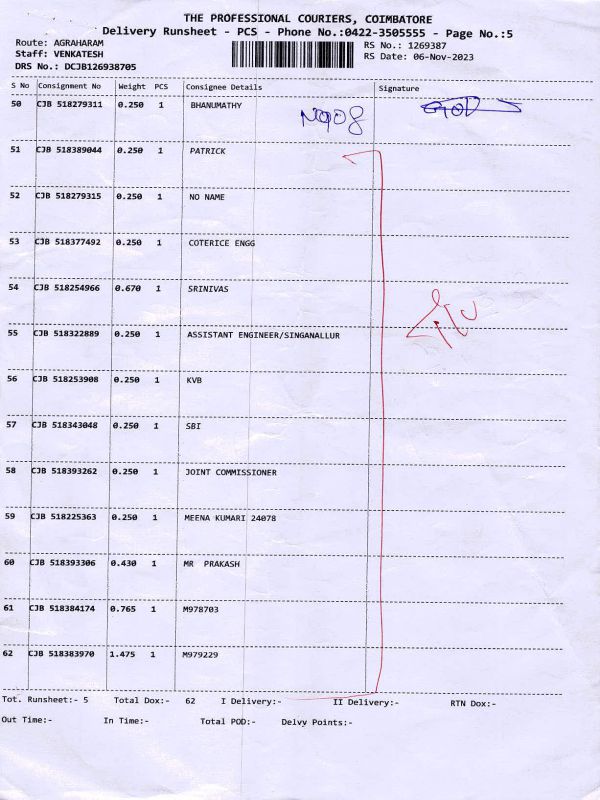 THE PROFESSIONAL COURIERS, COIMBATORE
Delivery Runsheet - PCS - Phone No.:0422-3505555 - Page No.:5
Route: AGRAHARAM RS No.: 1269387
Staff: VENKATESH RS Date: 06-Nov-2023
DRS No.: DCJB126938705
S No Consignment No Weight PCS Consignee Details Signature
50 CJB 518279311 0.250 1 BHANUMATHY
51 CJB 518389044 0.250 1 PATRICK
52 CJB 518279315 0.250 1 NO NAME
53 CJB 518377492 0.250 1 COTERICE ENGG
54 CJB 518254966 0.670 1 SRINIVAS
55 CJB 518322889 0.250 1 ASSISTANT ENGINEER/SINGANALLUR
56 CJB 518253908 0.250 1 KVB
57 CJB 518343048 0.250 1 SBI
58 CJB 518393262 0.250 1 JOINT COMMISSIONER
59 CJB 518225363 0.250 1 MEENA KUMARI 24078
60 CJB 518393306 0.430 1 MR PRAKASH
61 CJB 518384174 0.765 1 M978703
62 CJB 518383970 1.475 1 M979229
Tot. Runsheet:- 5 Total Dox:- 62 I Delivery:- II Delivery:- RTN Dox:-
Out Time:- In Time:- Total POD:- Delvy Points:-